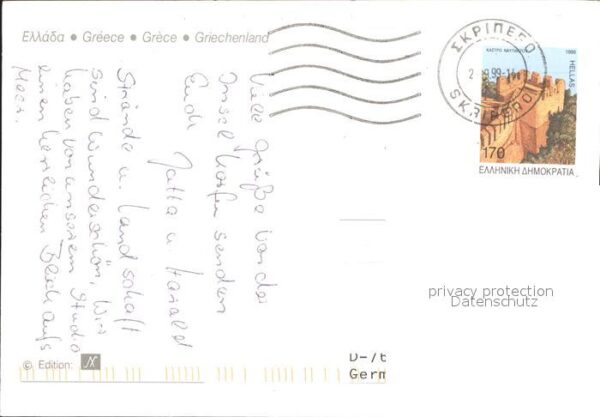 Ελλάδα • Greece • Grèce • Griechenland
Viele Grüße von der
Insel Korfu senden
Euch
Jutta u. Harald
Strände u. Landschaft
sind wunderschön. Wir
haben von unserem Studio
einen herrlichen Blick aufs
Meer.
ΣΚΡΙΠΕΡΟ
99-14
SKRIPERO
ΚΑΣΤΡΟ ΝΑΥΠΑΚΤΟΥ
1998
HELLAS
170
ΕΛΛΗΝΙΚΗ ΔΗΜΟΚΡΑΤΙΑ
privacy protection
Datenschutz
© Edition:
D-7
Germ